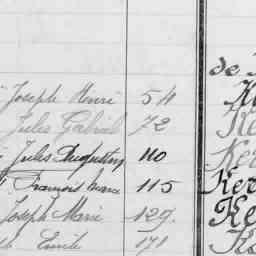 de
Joseph Henri 54
Jules Gabriel 72
Jules Augustin 110
François Marie 115
Joseph Marie 129.
Emile 171